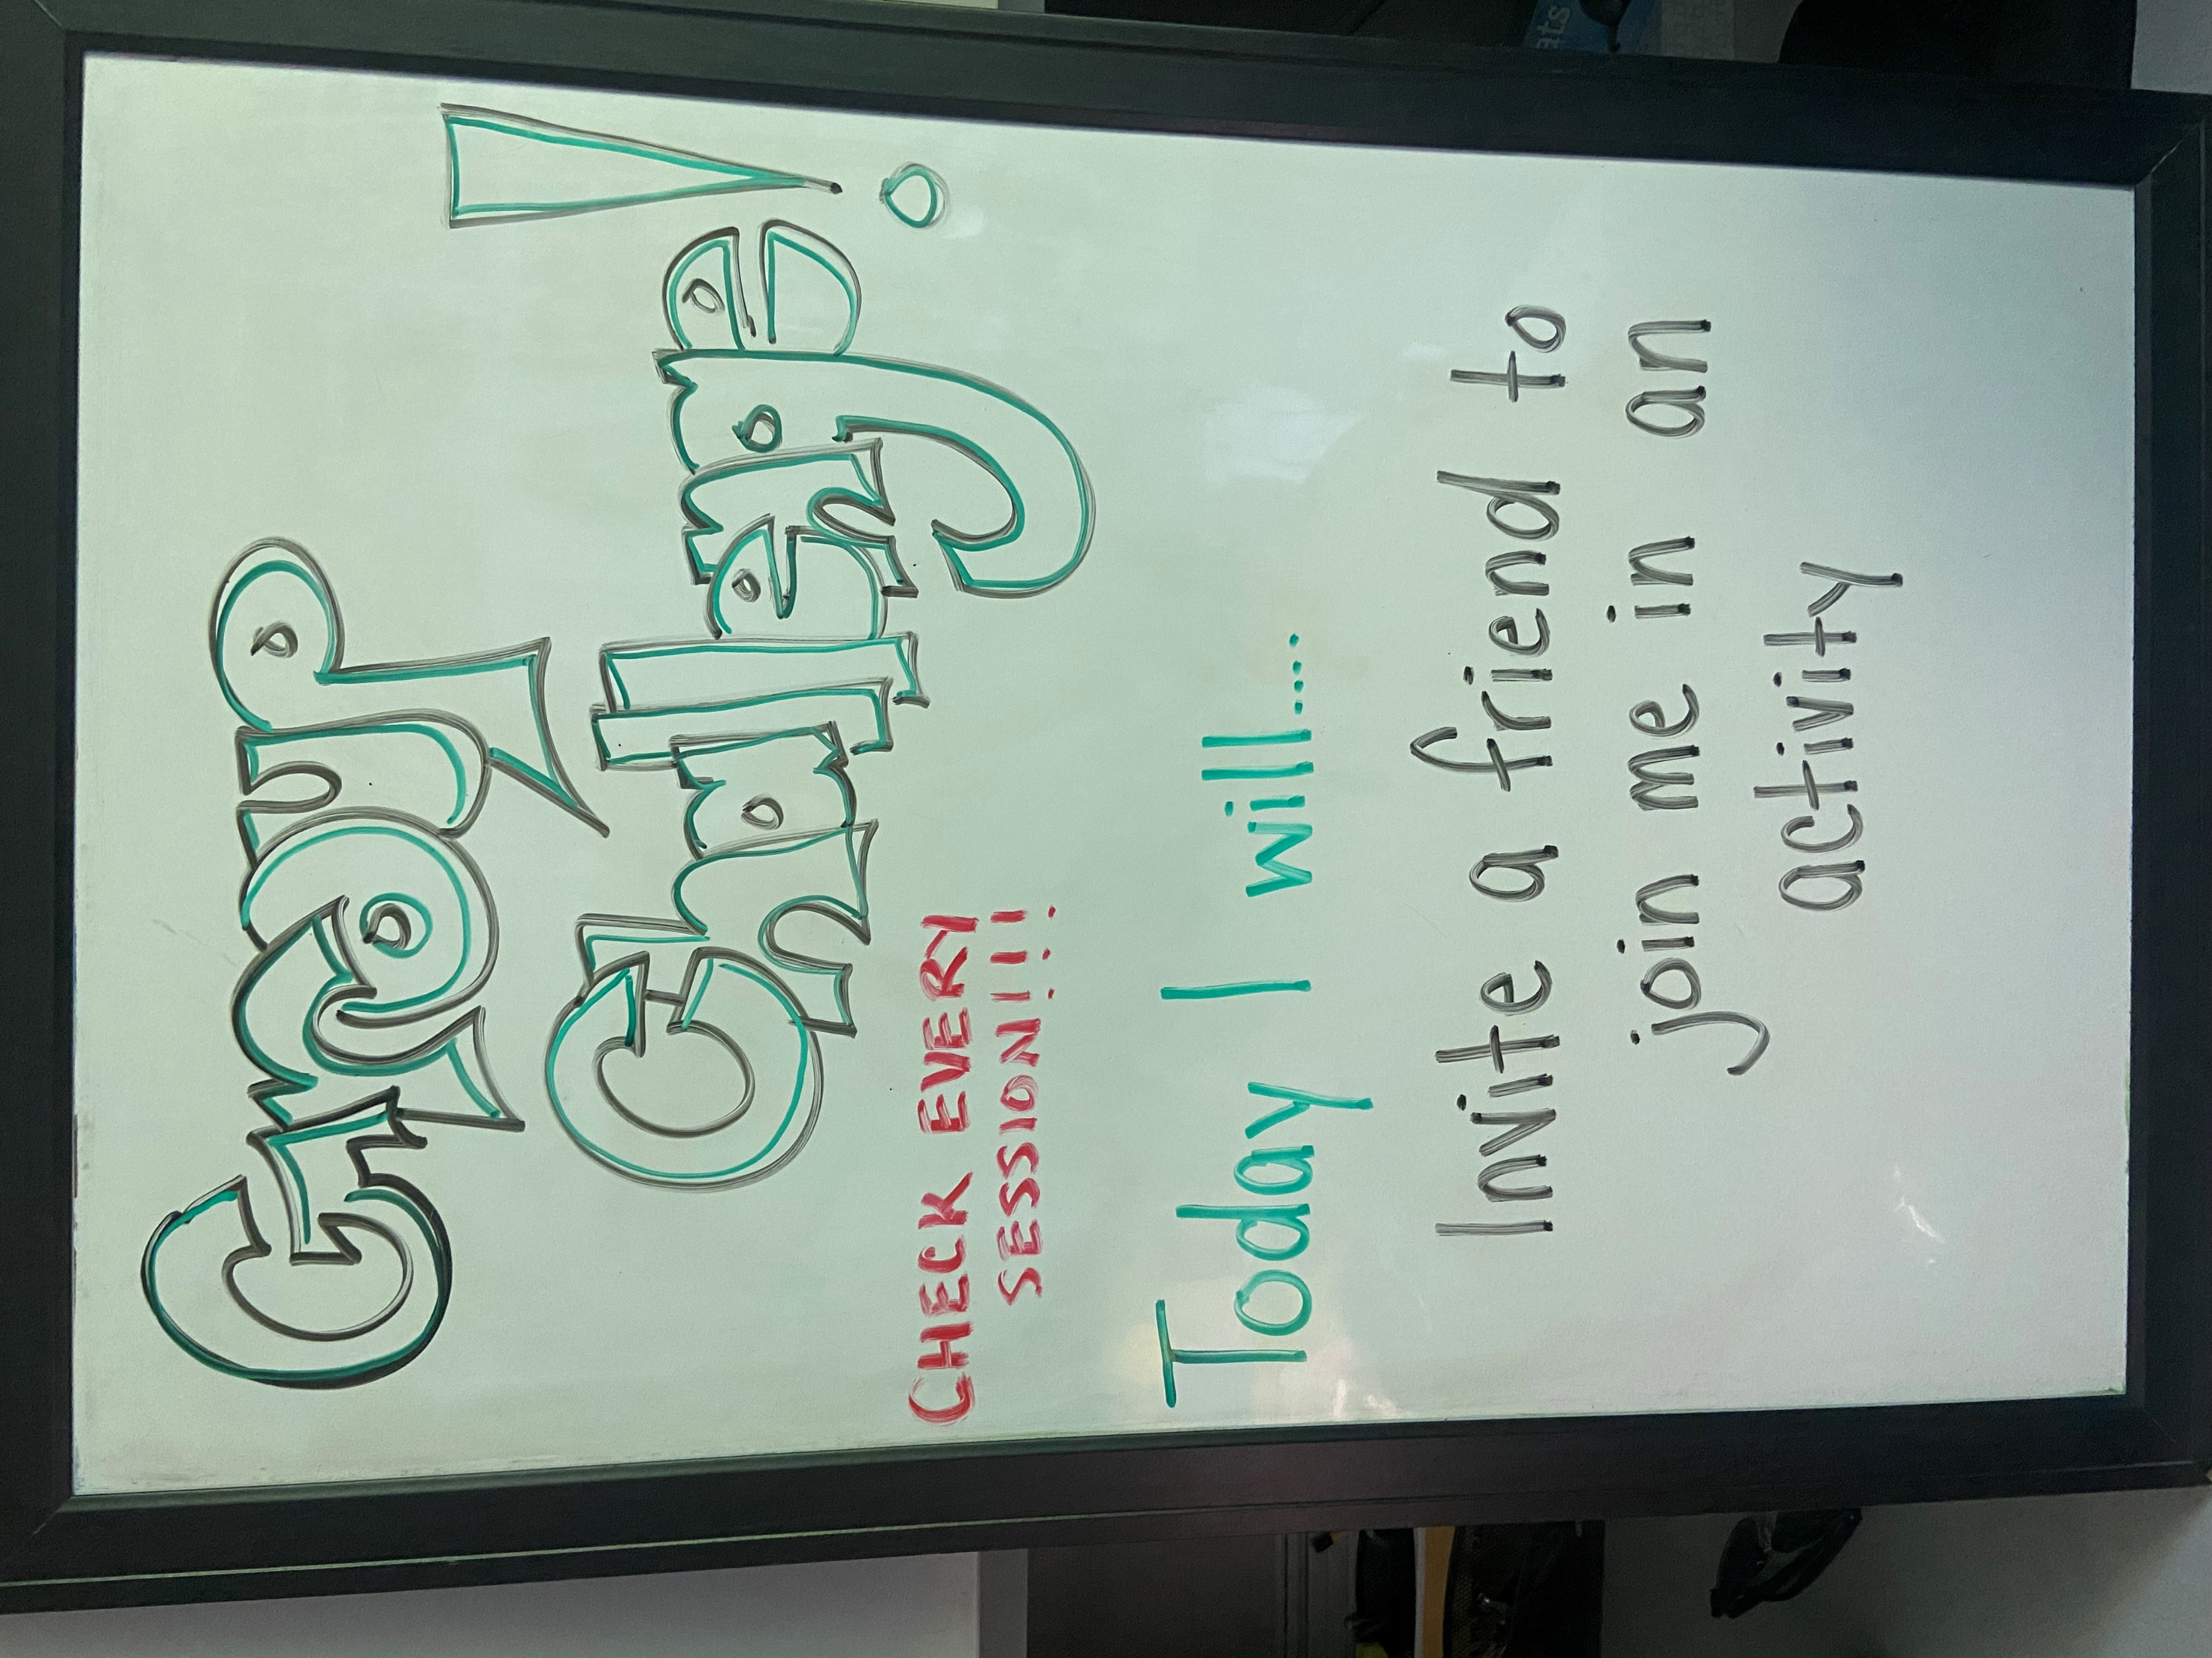 Group
Challenge!
CHECK EVERY
SESSION!!!
Today I will....
Invite a friend to
join me in an
activity